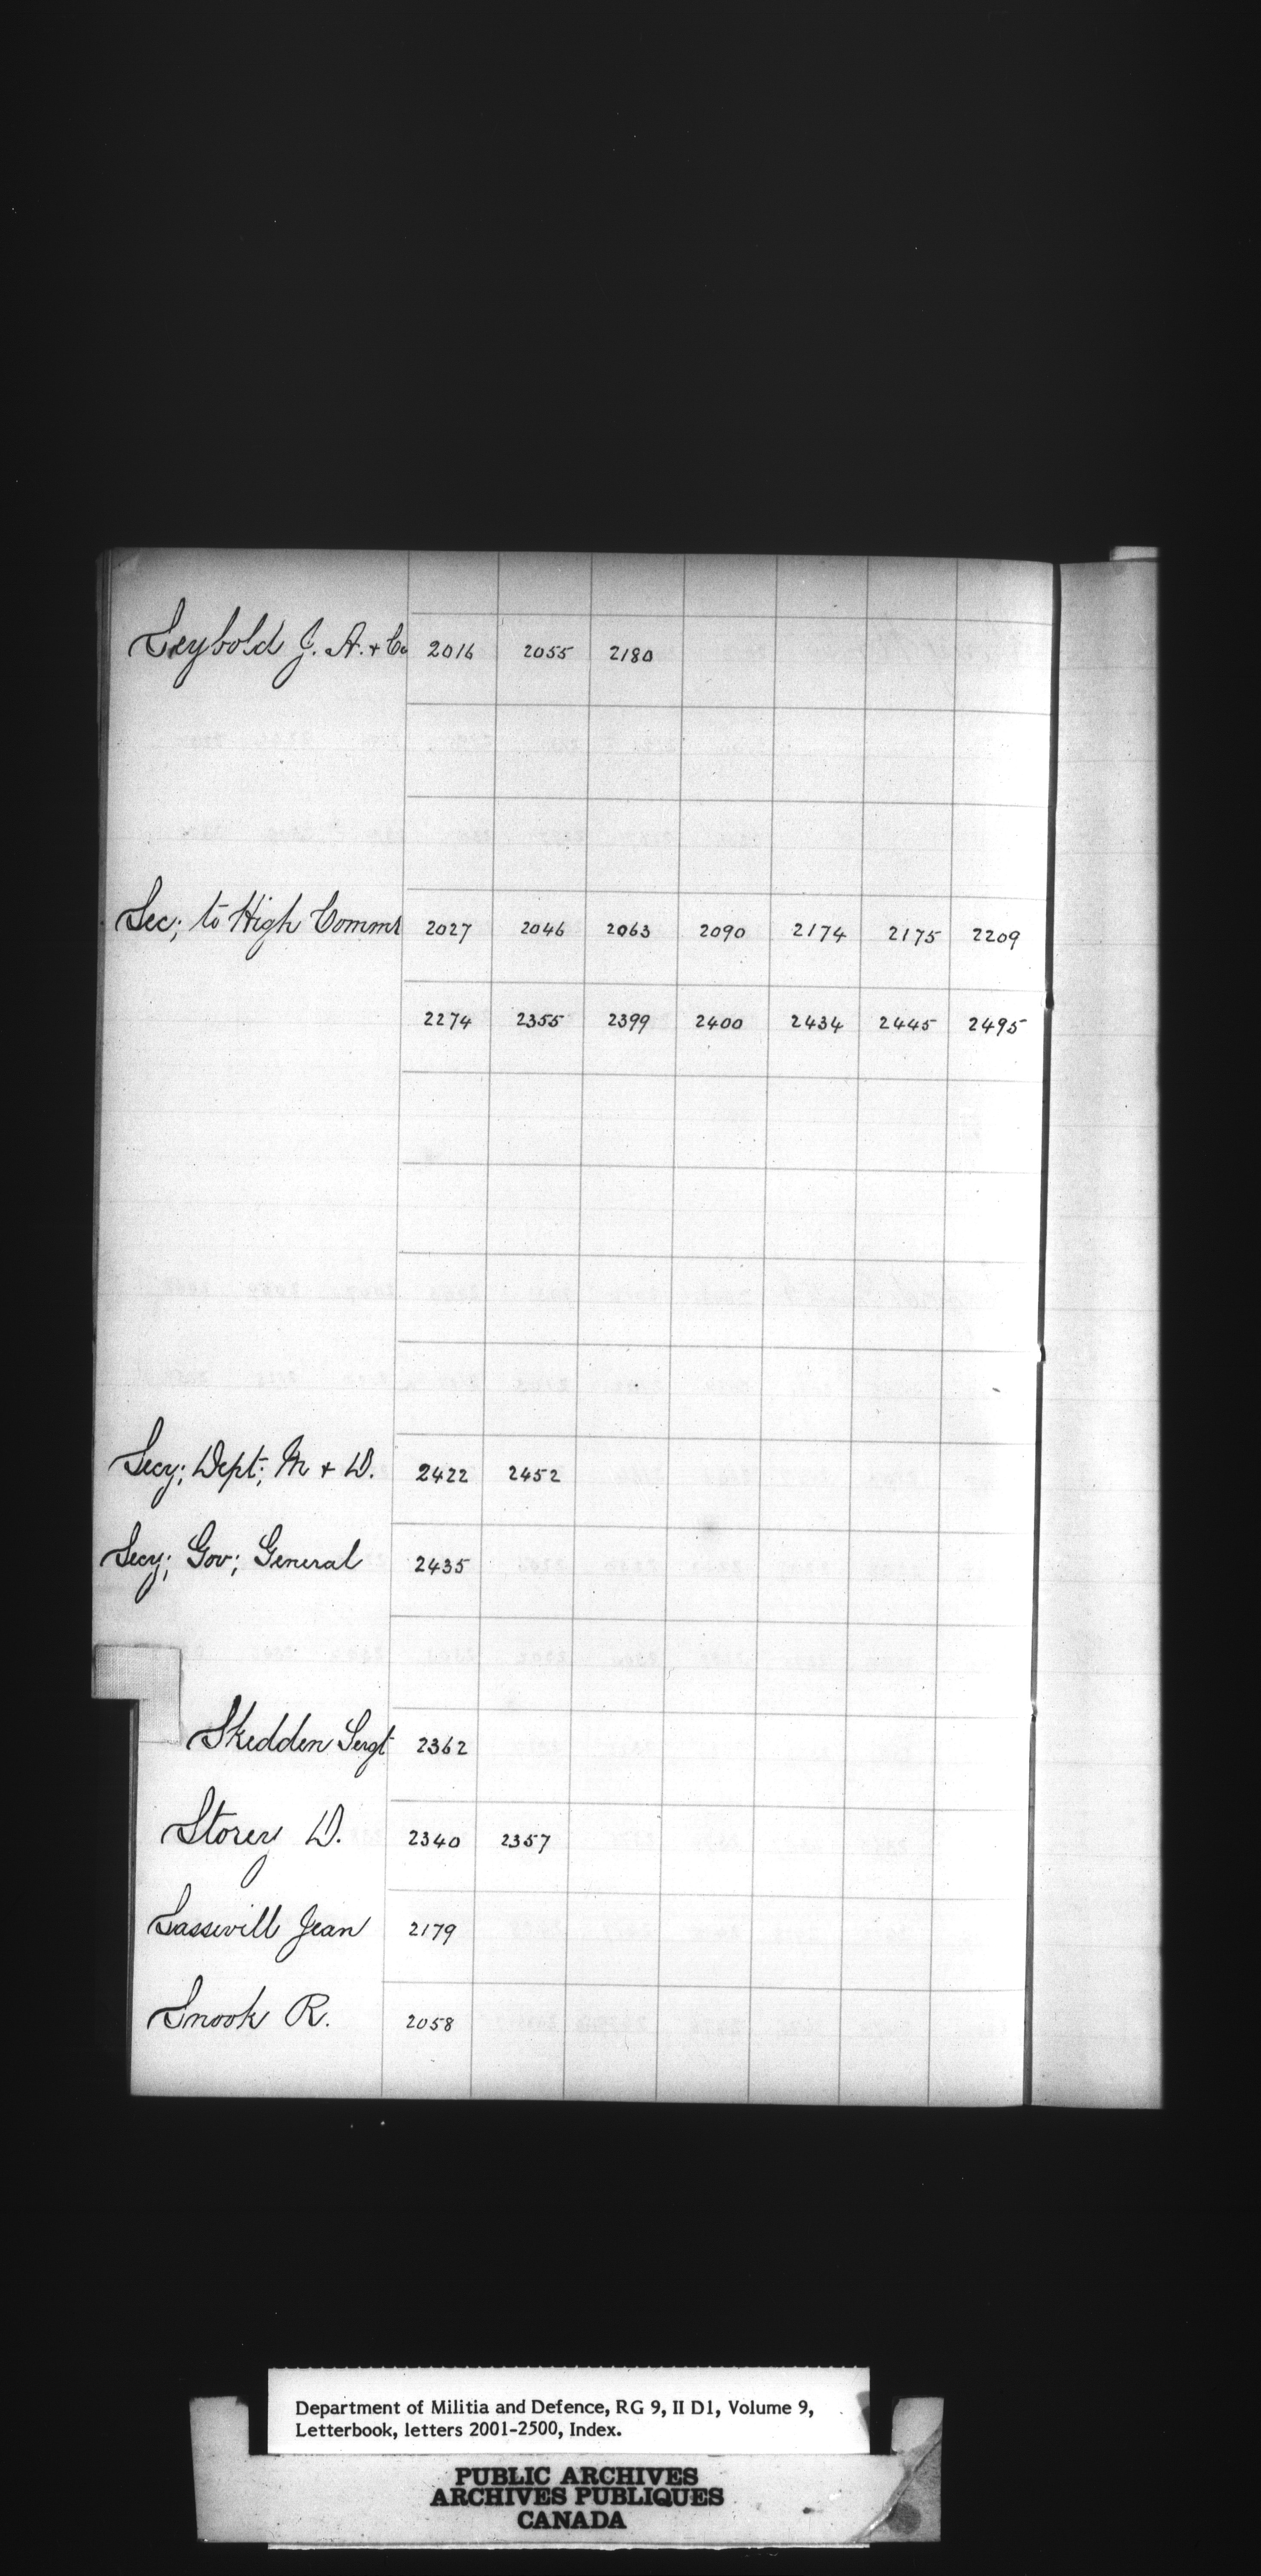 Seybold J. A. & Co 2016 2055 2180
Sec; to High Commr 2027 2046 2063 2090 2174 2175 2209
2274 2355 2399 2400 2434 2445 2495
Secy; Dept; M & D. 2422 2452
Secy; Gov; General 2435
Skedden Sergt 2362
Storey D. 2340 2357
Sassevill Jean 2179
Snook R. 2058
Department of Militia and Defence, RG 9, II D1, Volume 9,
Letterbook, letters 2001-2500, Index.
PUBLIC ARCHIVES
ARCHIVES PUBLIQUES
CANADA